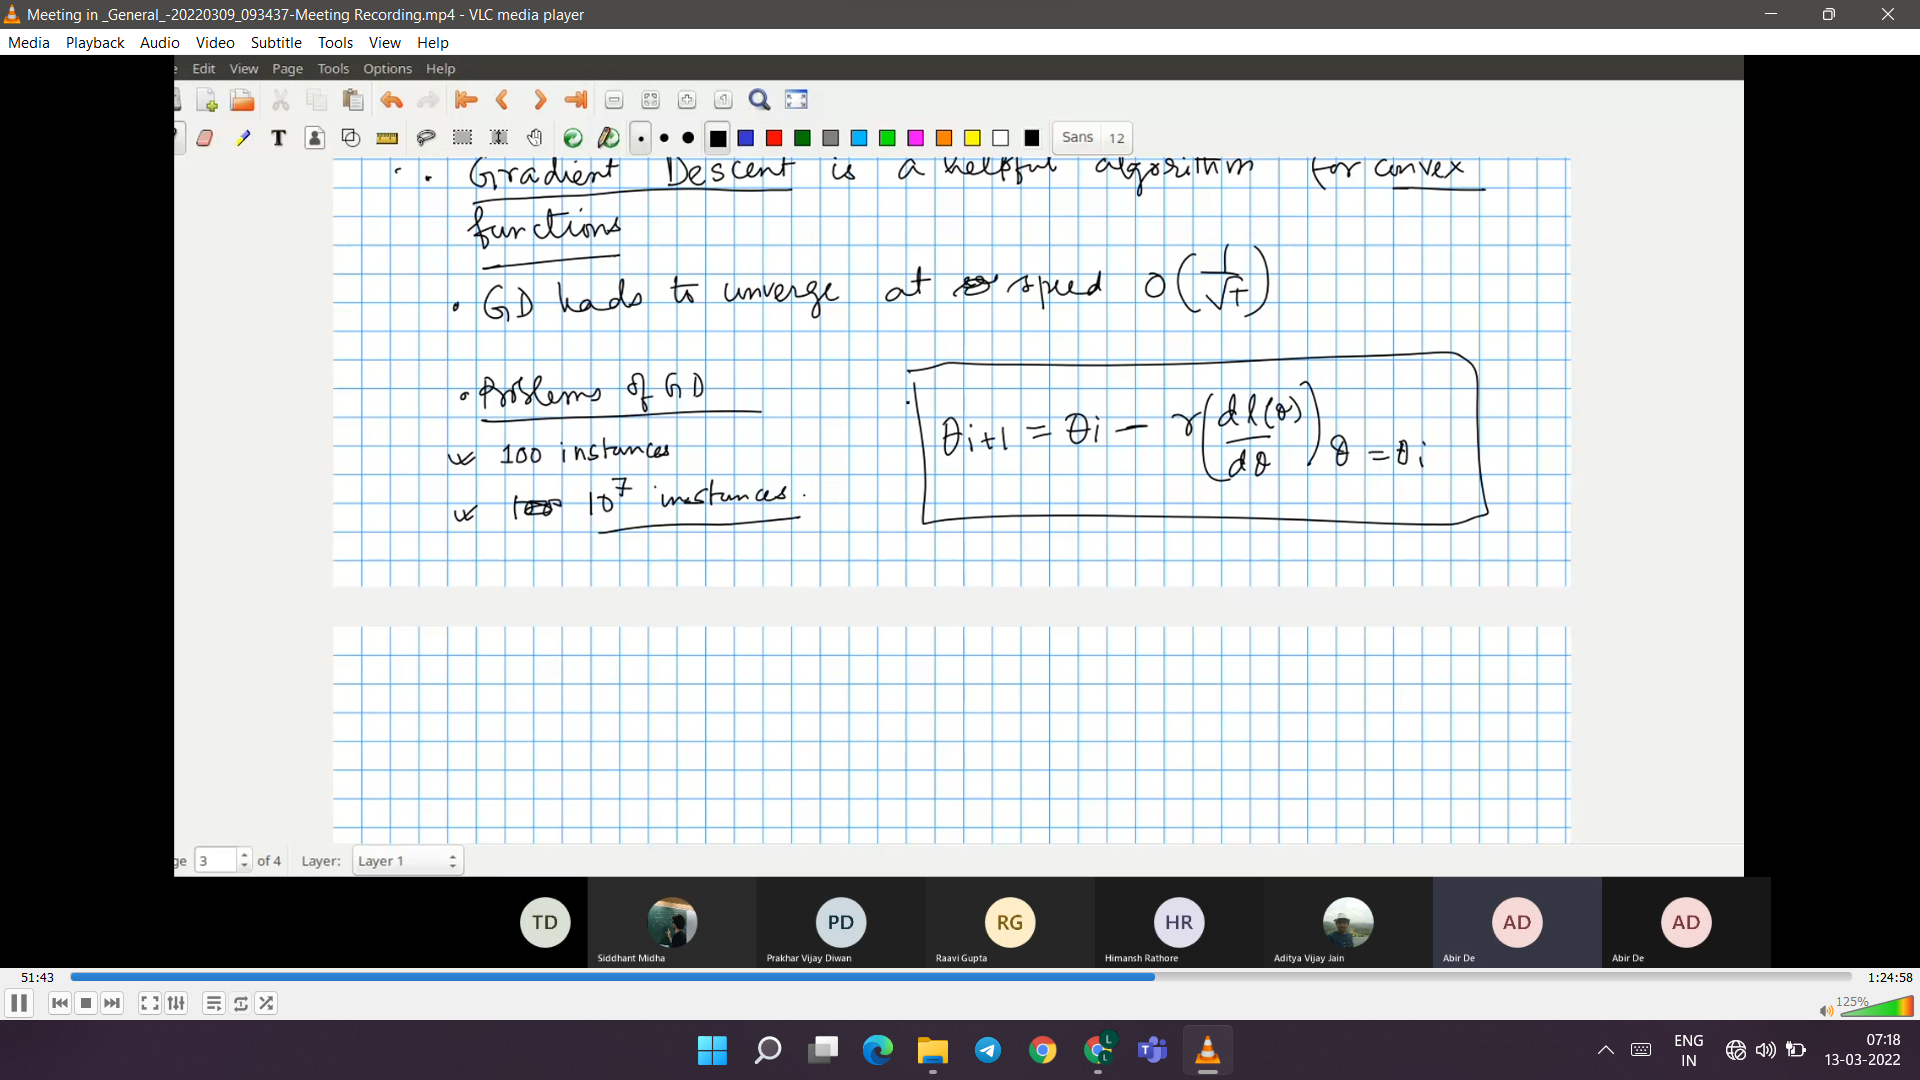 Meeting in _General_-20220309_093437-Meeting Recording.mp4 - VLC media player
Media Playback Audio Video Subtitle Tools View Help
e Edit View Page Tools Options Help
Sans 12
Gradient Descent is a helpful algorithm for convex
functions
GD leads to converge at speed O(1/√T)
Problems of GD
100 instances
10^7 instances.
θi+1 = θi − r(dl(θ)/dθ)θ=θi
ge 3 of 4 Layer: Layer 1
TD PD RG HR AD AD
Siddhant Midha Prakhar Vijay Diwan Raavi Gupta Himansh Rathore Aditya Vijay Jain Abir De Abir De
51:43 1:24:58
125%
L
L
ENG 07:18
IN 13-03-2022